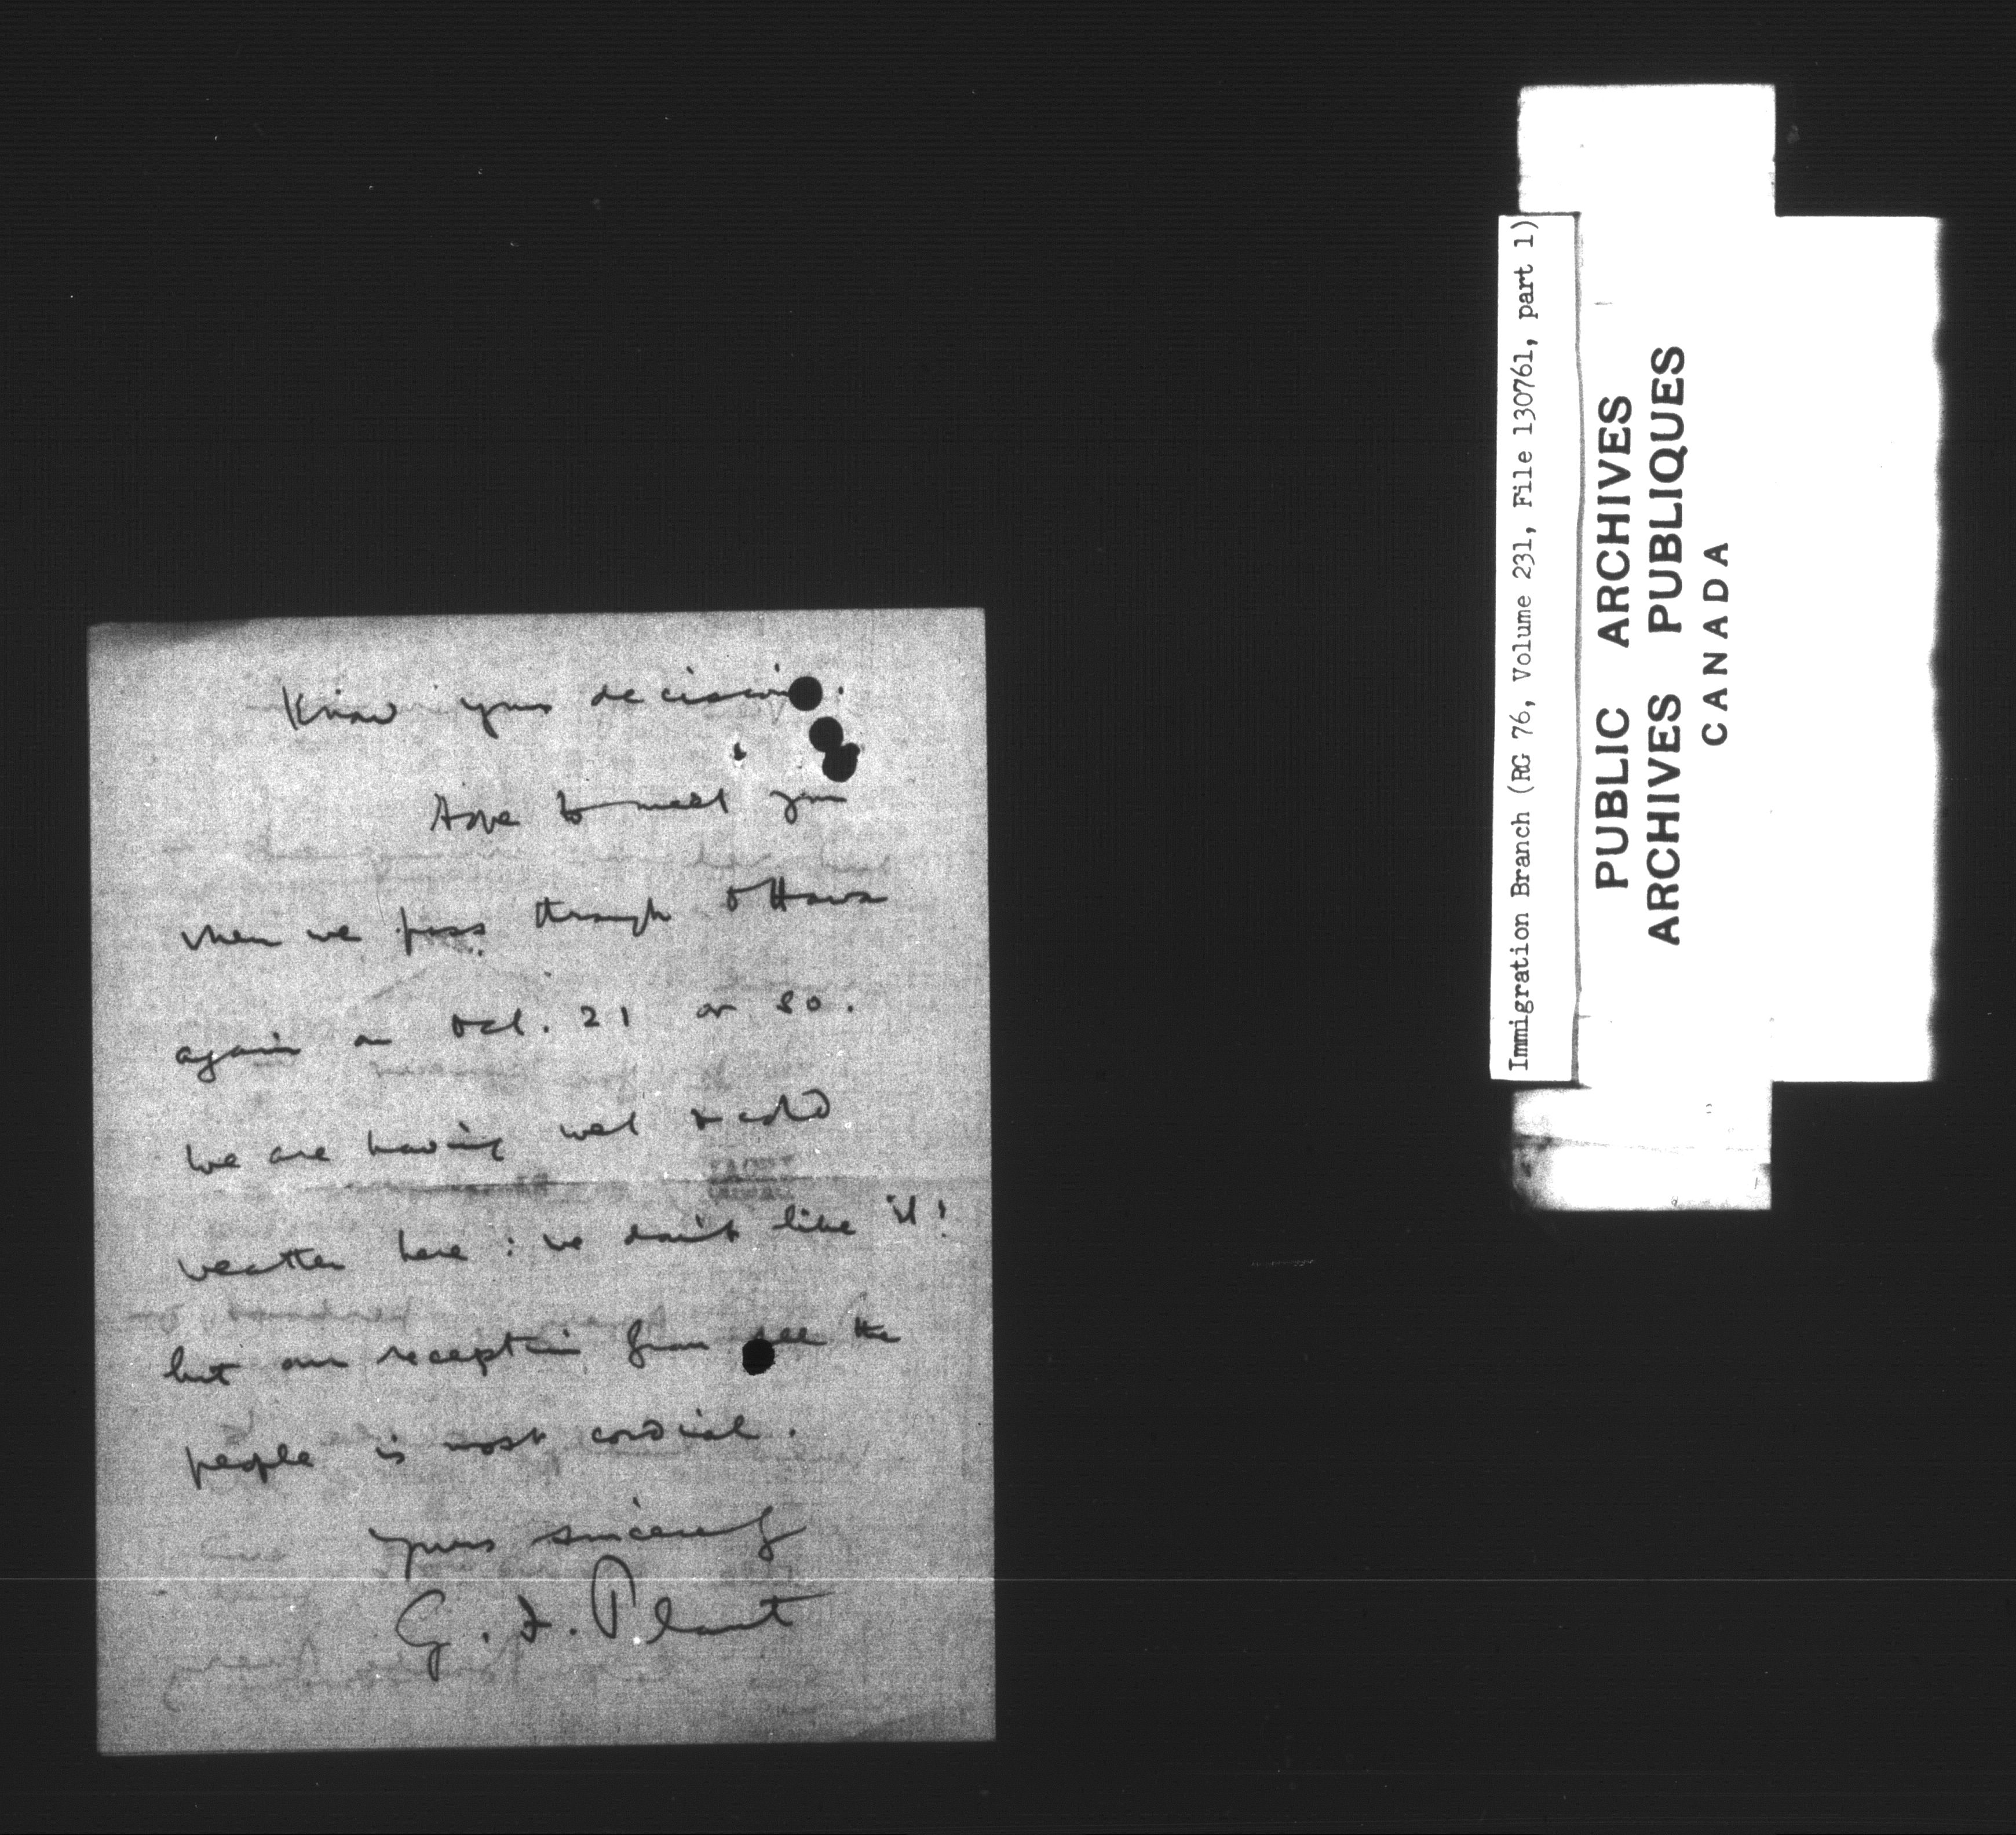 know your decision.
Hope to meet you
when we pass through Ottawa
again on Oct. 21 or so.
We are having wet & cold
weather here: we don't like it!
but our reception from all the
people is most cordial.
yours sincerely
G. F. Plant
Immigration Branch (RG 76, Volume 231, File 130761, part 1)
PUBLIC ARCHIVES
ARCHIVES PUBLIQUES
CANADA